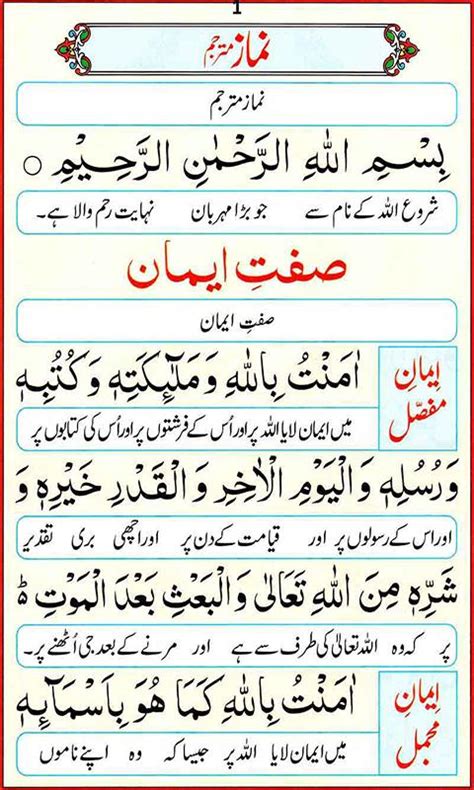 1
نماز مترجم
نماز مترجم
بِسْمِ اللهِ الرَّحْمٰنِ الرَّحِيْمِ ○
شروع اللہ کے نام سے جو بڑا مہربان نہایت رحم والا ہے۔
صفتِ ایمان
صفتِ ایمان
اِیمانِ مفصّل
اٰمَنْتُ بِاللهِ وَمَلٰٓئِكَتِهٖ وَكُتُبِهٖ
میں ایمان لایا اللہ پر اور اُس کے فرشتوں پر اور اُس کی کتابوں پر
وَرُسُلِهٖ وَالْيَوْمِ الْاٰخِرِ وَالْقَدْرِ خَيْرِهٖ وَ
اور اس کے رسولوں پر اور قیامت کے دن پر اور اچھی بری تقدیر
شَرِّهٖ مِنَ اللهِ تَعَالٰى وَالْبَعْثِ بَعْدَ الْمَوْتِ ؕ
پر کہ وہ اللہ تعالیٰ کی طرف سے ہے اور مرنے کے بعد جی اُٹھنے پر۔
اِیمانِ مجمل
اٰمَنْتُ بِاللهِ كَمَا هُوَ بِاَسْمَآئِهٖ
میں ایمان لایا اللہ پر جیسا کہ وہ اپنے ناموں